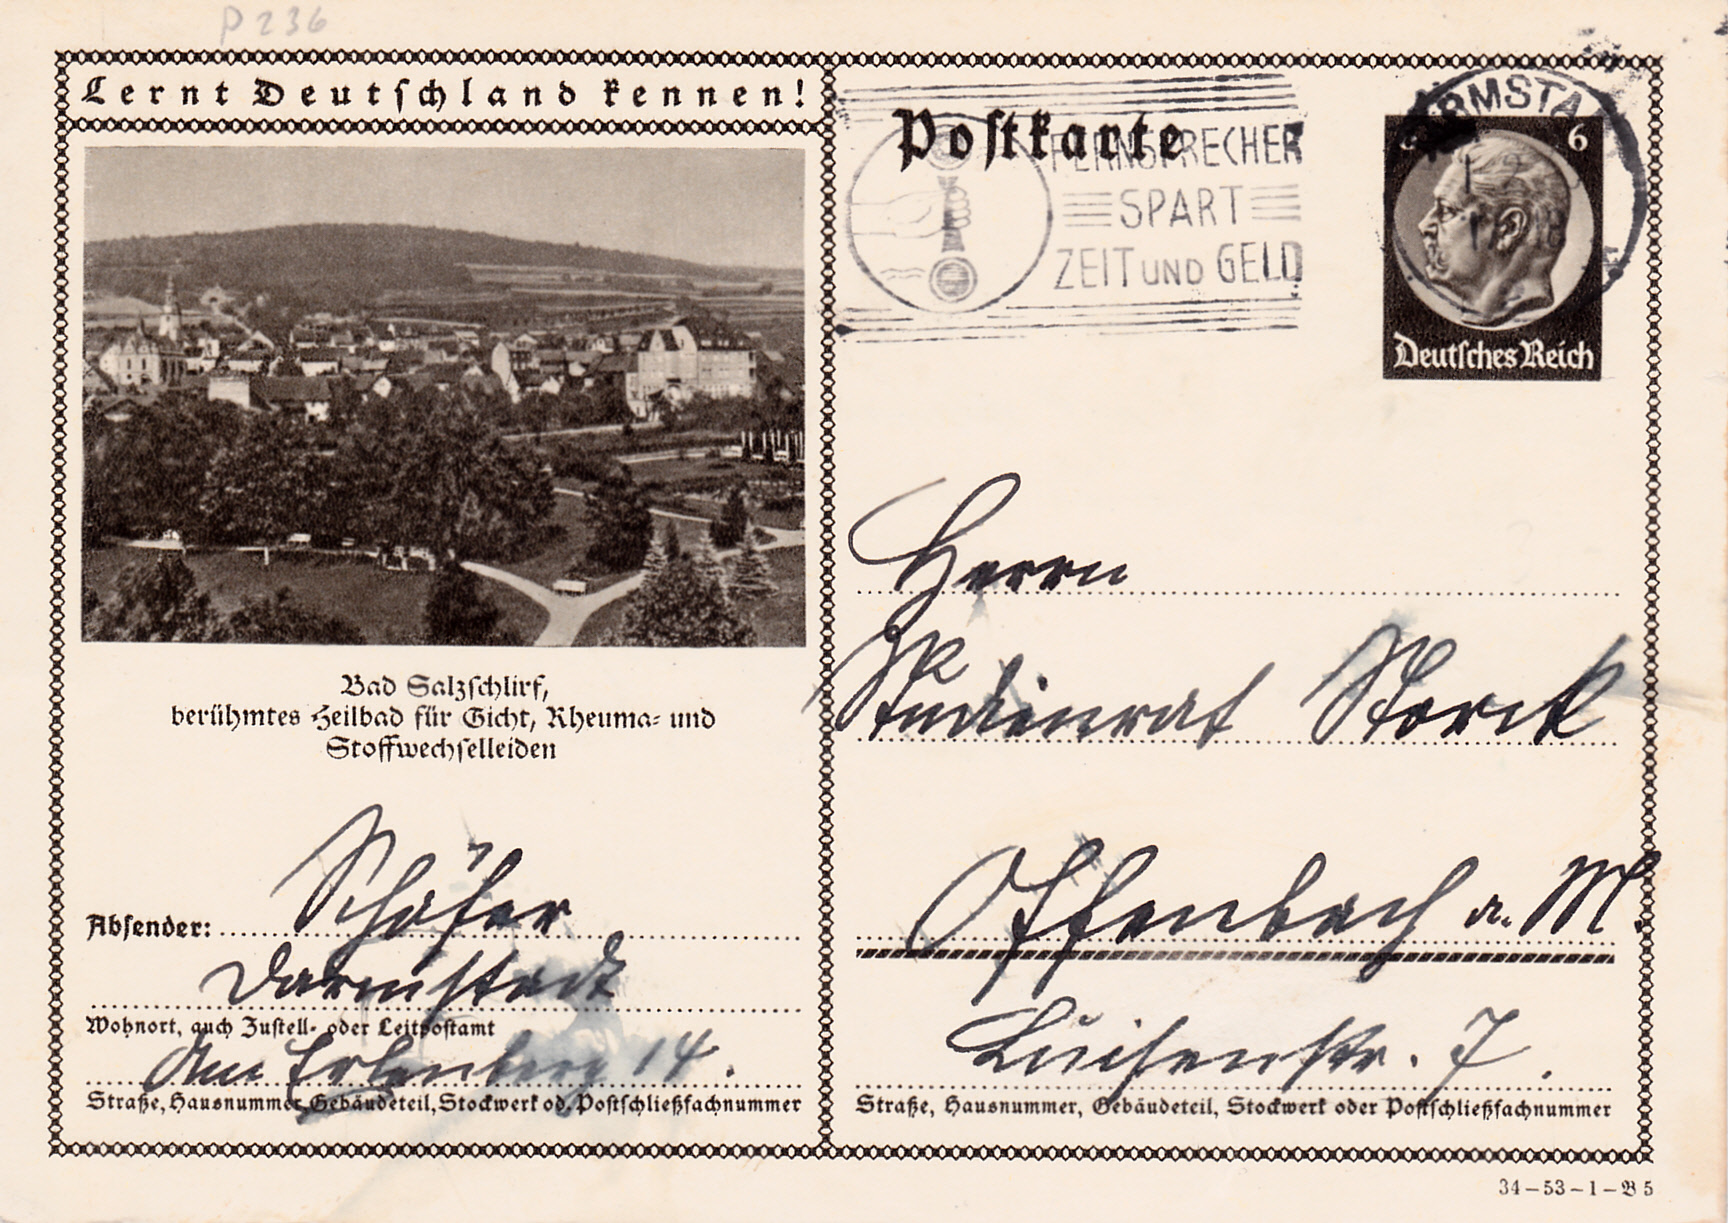 P 236
Lernt Deutschland kennen!
Postkarte
FERNSPRECHER
SPART
ZEIT UND GELD
6
Deutsches Reich
Herrn
Studienrat Storck
Offenbach a. M.
Luisenstr. 7.
Straße, Hausnummer, Gebäudeteil, Stockwerk oder Postschließfachnummer
Bad Salzschlirf,
berühmtes Heilbad für Gicht, Rheuma- und
Stoffwechselleiden
Absender: Schäfer
Darmstadt
Wohnort, auch Zustell- oder Leitpostamt
Am Erlenberg 14.
Straße, Hausnummer, Gebäudeteil, Stockwerk od. Postschließfachnummer
34-53-1-B 5